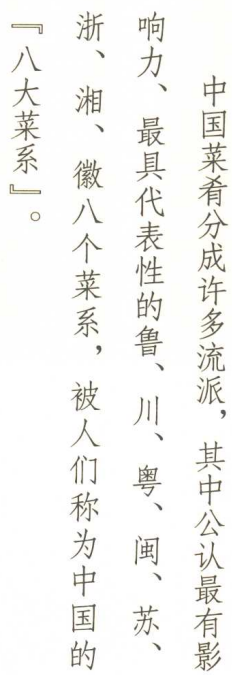 中国菜肴分成许多流派，其中公认最有影
响力、最具代表性的鲁、川、粤、闽、苏、
浙、湘、徽八个菜系，被人们称为中国的
『八大菜系』。